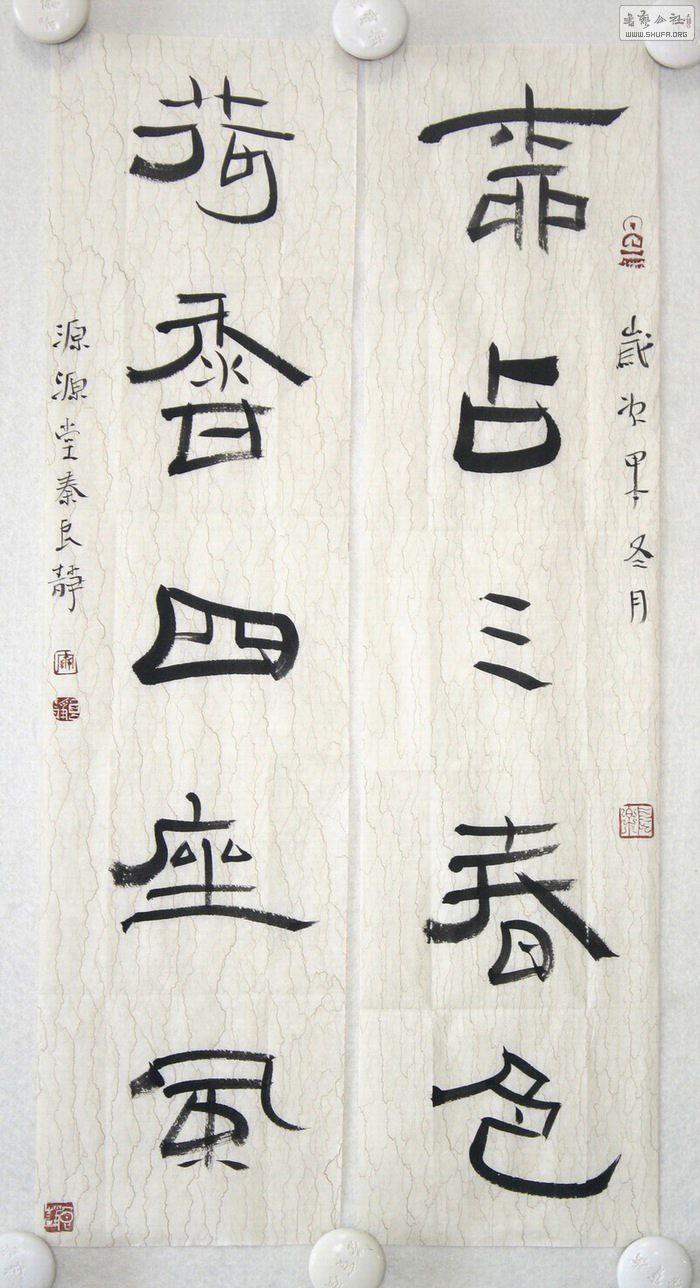 歲次甲午冬月
占三春色
荷香四座風
源源堂秦良靜
書藝公社
WWW.SHUFA.ORG